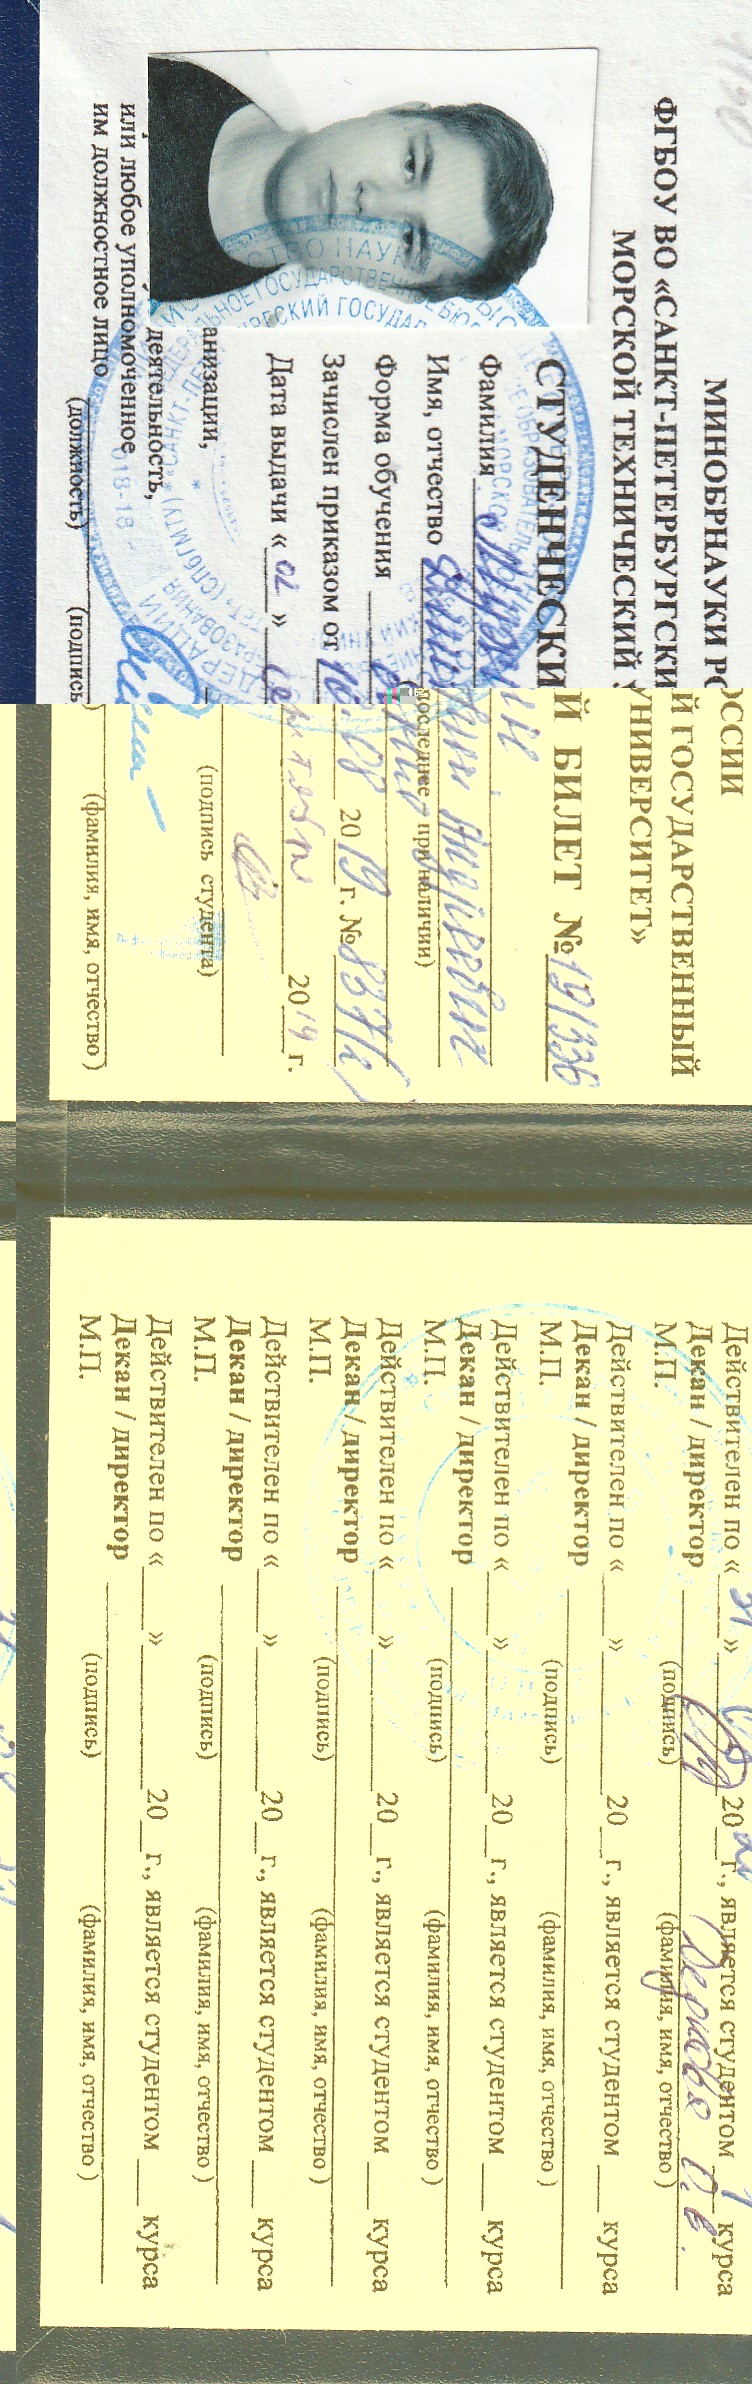 МИНОБРНАУКИ РОССИИ
ФГБОУ ВО «САНКТ-ПЕТЕРБУРГСКИЙ ГОСУДАРСТВЕННЫЙ
МОРСКОЙ ТЕХНИЧЕСКИЙ УНИВЕРСИТЕТ»
СТУДЕНЧЕСКИЙ БИЛЕТ № 191336
Фамилия
Имя, отчество Дмитрий Андреевич
последнее - при наличии)
Форма обучения
Зачислен приказом от 16.08 2019 г. № 837/2
Дата выдачи «02» сентября 2019 г.
(подпись студента)
анизации,
деятельность,
или любое уполномоченное
им должностное лицо
(должность) (подпись) (фамилия, имя, отчество )
018-18
Действителен по «31» 20 20 г., является студентом 1 курса
Декан / директор О.В.
(подпись) (фамилия, имя, отчество )
М.П.
Действителен по «____»__________20__г., является студентом ___ курса
Декан / директор
М.П. (подпись) (фамилия, имя, отчество )
Действителен по «____»__________20__г., является студентом ___ курса
Декан / директор
М.П. (подпись) (фамилия, имя, отчество )
Действителен по «____»__________20__г., является студентом ___ курса
Декан / директор
М.П. (подпись) (фамилия, имя, отчество )
Действителен по «____»__________20__г., является студентом ___ курса
Декан / директор
М.П. (подпись) (фамилия, имя, отчество )
Действителен по «____»__________20__г., является студентом ___ курса
Декан / директор
М.П. (подпись) (фамилия, имя, отчество )